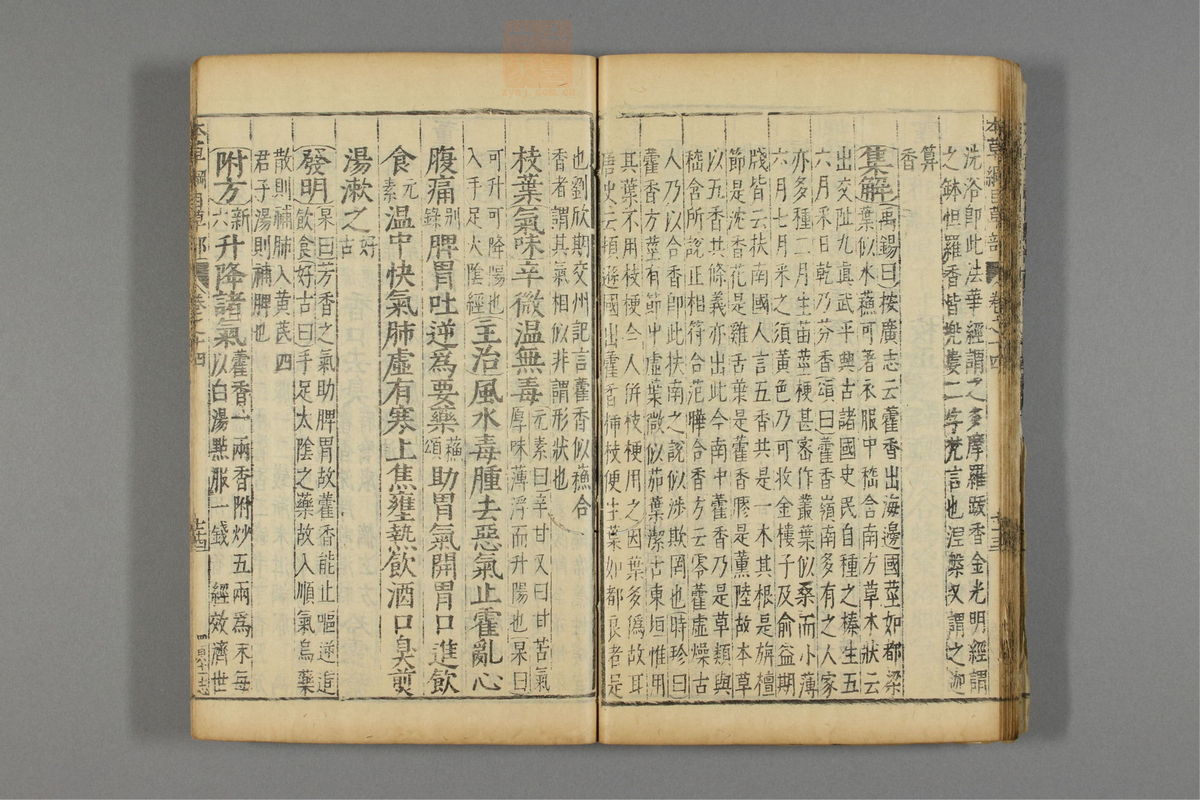 本草綱目草部 卷之十四
洗浴即此法華經謂之多摩羅跋香金光明經謂
之鉢怛羅香皆兜婁二字梵言也涅槃又謂之迦
算
香
集解禹錫曰按廣志云藿香出海邊國莖如都梁
葉似水蘇可著衣服中嵇含南方草木狀云
出交趾九真武平興古諸國吏民自種之榛生五
六月采日乾乃芬香頌曰藿香嶺南多有之人家
亦多種二月生苗莖梗甚密作叢葉似桑而小薄
六月七月采之須黃色乃可收金樓子及俞益期
牋皆云扶南國人言五香共是一木其根是旃檀
節是沈香花是雞舌葉是藿香膠是薰陸故本草
以五香共條義亦出此今南中藿香乃是草類與
嵇含所說正相符合范曄合香方云零藿虛燥古
人乃以合香即此扶南之說似涉欺罔也時珍曰
藿香方莖有節中虛葉微似茄葉潔古東垣惟用
其葉不用枝梗今人併枝梗用之因葉多偽故耳
唐史云頓遜國出藿香插枝便生葉如都梁者是
也劉欣期交州記言藿香似蘇合
香者謂其氣相似非謂形狀也
枝葉氣味辛微溫無毒元素曰辛甘又曰甘苦氣
厚味薄浮而升陽也杲曰
可升可降陽也
入手足太陰經主治風水毒腫去惡氣止霍亂心
腹痛別錄脾胃吐逆為要藥蘇頌助胃氣開胃口進飲
食元素溫中快氣肺虛有寒上焦壅熱飲酒口臭煎
湯漱之好古
發明杲曰芳香之氣助脾胃故藿香能止嘔逆進
飲食好古曰手足太陰之藥故入順氣烏藥
散則補肺入黃芪四
君子湯則補脾也
附方新六升降諸氣藿香一兩香附炒五兩為末每
以白湯點服一錢 經效濟世
本草綱目草部 卷之十四